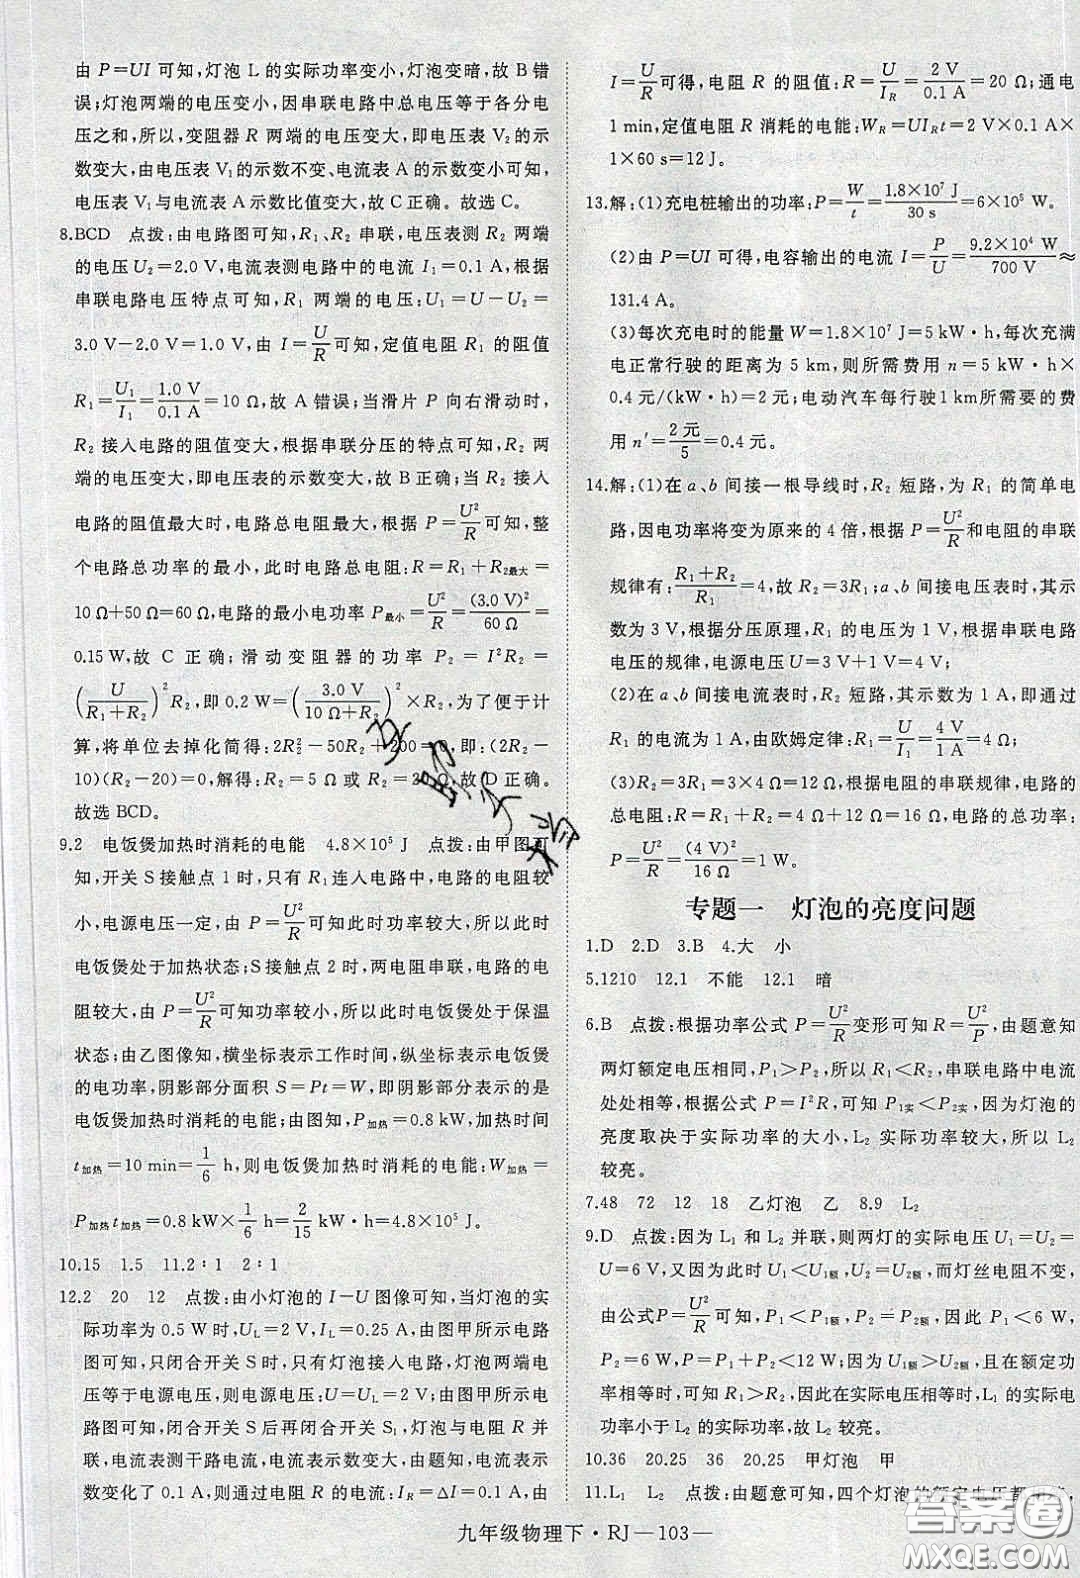 由 P=UI 可知,灯泡 L 的实际功率变小,灯泡变暗,故 B 错
误;灯泡两端的电压变小,因串联电路中总电压等于各分电
压之和,所以,变阻器 R 两端的电压变大,即电压表 V₂ 的示
数变大,由电压表 V₁ 的示数不变、电流表 A 的示数变小可知,
电压表 V₁ 与电流表 A 示数比值变大,故 C 正确。故选 C。
8.BCD 点拨:由电路图可知,R₁、R₂ 串联,电压表测 R₂ 两端
的电压 U₂=2.0 V,电流表测电路中的电流 I₁=0.1 A,根据
串联电路电压特点可知,R₁ 两端的电压:U₁=U−U₂=
3.0 V−2.0 V=1.0 V,由 I=U/R 可知,定值电阻 R₁ 的阻值
R₁=U₁/I₁=1.0 V/0.1 A=10 Ω,故 A 错误;当滑片 P 向右滑动时,
R₂ 接入电路的阻值变大,根据串联分压的特点可知,R₂ 两
端的电压变大,即电压表的示数变大,故 B 正确;当 R₂ 接入
电路的阻值最大时,电路总电阻最大,根据 P=U²/R 可知,整
个电路总功率的最小,此时电路总电阻:R=R₁+R₂最大=
10 Ω+50 Ω=60 Ω,电路的最小电功率 P最小=U²/R=(3.0 V)²/60 Ω=
0.15 W,故 C 正确;滑动变阻器的功率 P₂=I²R₂=
(U/(R₁+R₂))²R₂,即 0.2 W=(3.0 V/(10 Ω+R₂))²×R₂,为了便于计
算,将单位去掉化简得:2R₂²−50R₂+200=0,即:(2R₂−
10)(R₂−20)=0,解得:R₂=5 Ω 或 R₂=20 Ω,故 D 正确。
故选 BCD。
9.2 电饭煲加热时消耗的电能 4.8×10⁵ J 点拨:由甲图可
知,开关 S 接触点 1 时,只有 R₁ 连入电路中,电路的电阻较
小,电源电压一定,由 P=U²/R 可知此时功率较大,所以此时
电饭煲处于加热状态;S 接触点 2 时,两电阻串联,电路的电
阻较大,由 P=U²/R 可知功率较小,所以此时电饭煲处于保温
状态;由乙图像知,横坐标表示工作时间,纵坐标表示电饭煲
的电功率,阴影部分面积 S=Pt=W,即阴影部分表示的是
电饭煲加热时消耗的电能;由图知,P加热=0.8 kW,加热时间
t加热=10 min=1/6 h,则电饭煲加热时消耗的电能:W加热=
P加热t加热=0.8 kW×1/6 h=2/15 kW·h=4.8×10⁵ J。
10.15 1.5 11.2∶1 2∶1
12.2 20 12 点拨:由小灯泡的 I−U 图像可知,当灯泡的实
际功率为 0.5 W 时,U_L=2 V,I_L=0.25 A,由图甲所示电路
图可知,只闭合开关 S 时,只有灯泡接入电路,灯泡两端电
压等于电源电压,则电源电压:U=U_L=2 V;由图甲所示电
路图可知,闭合开关 S 后再闭合开关 S₁,灯泡与电阻 R 并
联,电流表测干路电流,电流表示数变大,由于电流表示
数变化了 0.1 A,则通过电阻 R 的电流:I_R=ΔI=0.1 A,由
I=U/R 可得,电阻 R 的阻值:R=U/I_R=2 V/0.1 A=20 Ω;通电
1 min,定值电阻 R 消耗的电能:W_R=UI_Rt=2 V×0.1 A×
1×60 s=12 J。
13.解:(1)充电桩输出的功率:P=W/t=1.8×10⁷ J/30 s=6×10⁵ W。
(2)由 P=UI 可得,电容输出的电流 I=P/U=9.2×10⁴ W/700 V≈
131.4 A。
(3)每次充电时的能量 W=1.8×10⁷ J=5 kW·h,每次充满
电正常行驶的距离为 5 km,则所需费用 n=5 kW·h×
0.4 元/(kW·h)=2 元;电动汽车每行驶 1 km 所需要的费
用 n′=2 元/5=0.4 元。
14.解:(1)在 a、b 间接一根导线时,R₂ 短路,为 R₁ 的简单电
路,因电功率将变为原来的 4 倍,根据 P=U²/R 和电阻的串联
规律有:(R₁+R₂)/R₁=4,故 R₂=3R₁;a、b 间接电压表时,其示
数为 3 V,根据分压原理,R₁ 的电压为 1 V,根据串联电路
电压的规律,电源电压 U=3 V+1 V=4 V;
(2)在 a、b 间接电流表时,R₂ 短路,其示数为 1 A,即通过
R₁ 的电流为 1 A,由欧姆定律:R₁=U/I₁=4 V/1 A=4 Ω;
(3)R₂=3R₁=3×4 Ω=12 Ω,根据电阻的串联规律,电路的
总电阻:R=R₁+R₂=4 Ω+12 Ω=16 Ω,电路的总功率:
P=U²/R=(4 V)²/16 Ω=1 W。
专题一 灯泡的亮度问题
1.D 2.D 3.B 4.大 小
5.1210 12.1 不能 12.1 暗
6.B 点拨:根据功率公式 P=U²/R 变形可知 R=U²/P,由题意知
两灯额定电压相同,P₁>P₂,所以 R₁<R₂,串联电路中电流
处处相等,根据公式 P=I²R,可知 P₁实<P₂实,因为灯泡的
亮度取决于实际功率的大小,L₂ 实际功率较大,所以 L₂
较亮。
7.48 72 12 18 乙灯泡 乙 8.9 L₂
9.D 点拨:因为 L₁ 和 L₂ 并联,所以两灯的实际电压 U₁=U₂=
U=6 V,又因为此时 U₁<U₁额,U₂=U₂额,而灯丝电阻不变,
由公式 P=U²/R 可知,P₁<P₁额,P₂=P₂额,所以 P₁<6 W,
P₂=6 W,P=P₁+P₂<12 W;因为 U₁额>U₂额,且在额定功
率相等时,可知 R₁>R₂,因此在实际电压相等时,L₁ 的实际电
功率小于 L₂ 的实际功率,故 L₂ 较亮。
10.36 20.25 36 20.25 甲灯泡 甲
11.L₁ L₂ 点拨:由题意可知,四个灯泡的额定电压都
九年级物理下·RJ—103—
答案圈
MXQE.COM